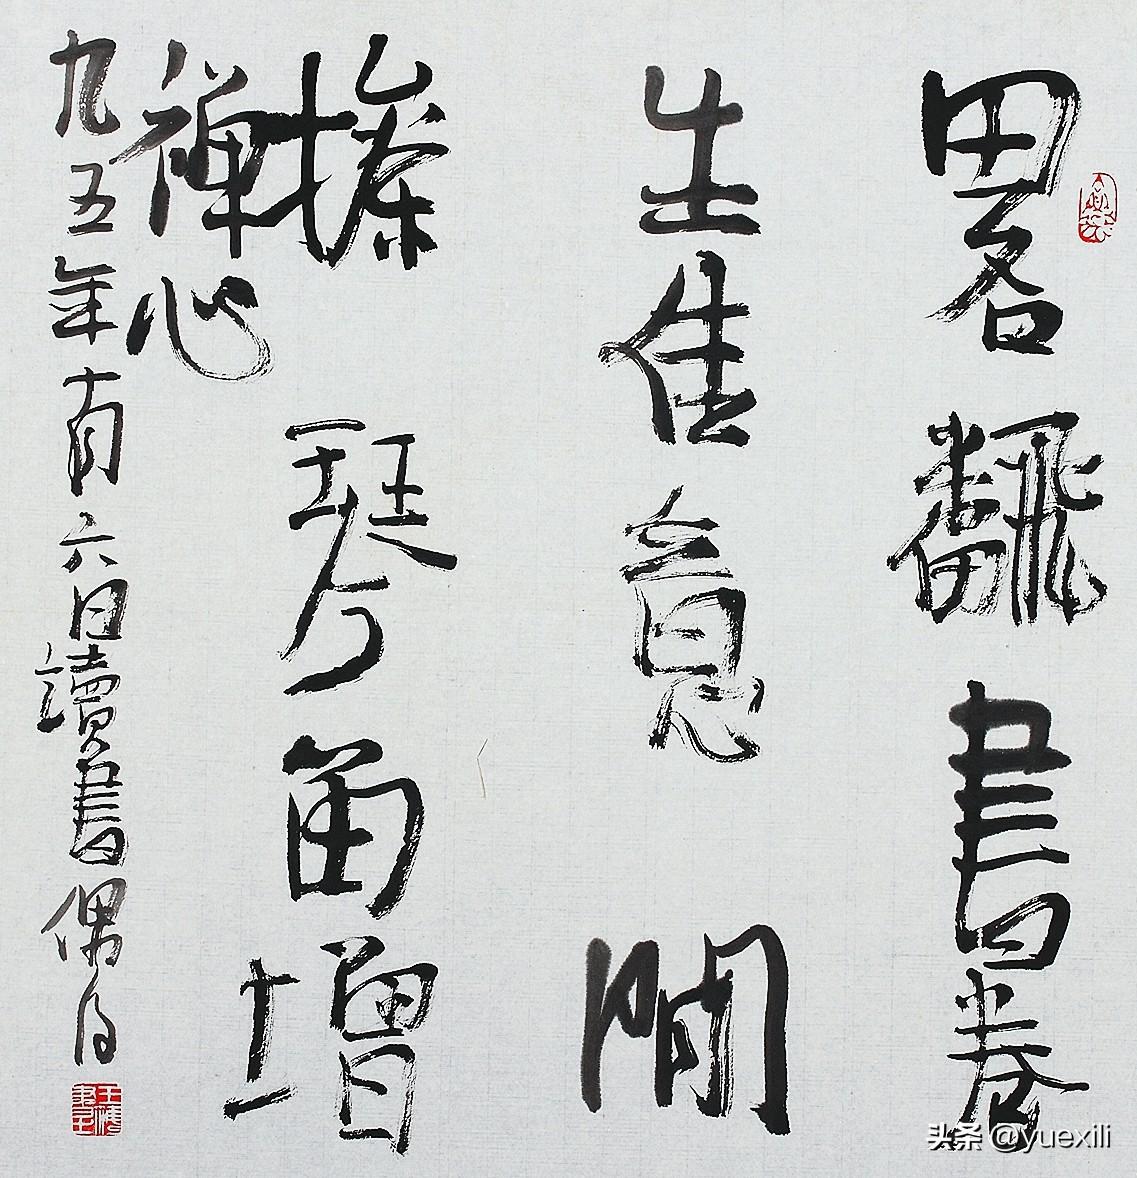 畧翻書卷
生佳意間
琴增
禪心
九五年十月六日讀書偶得
头条 @yuexili